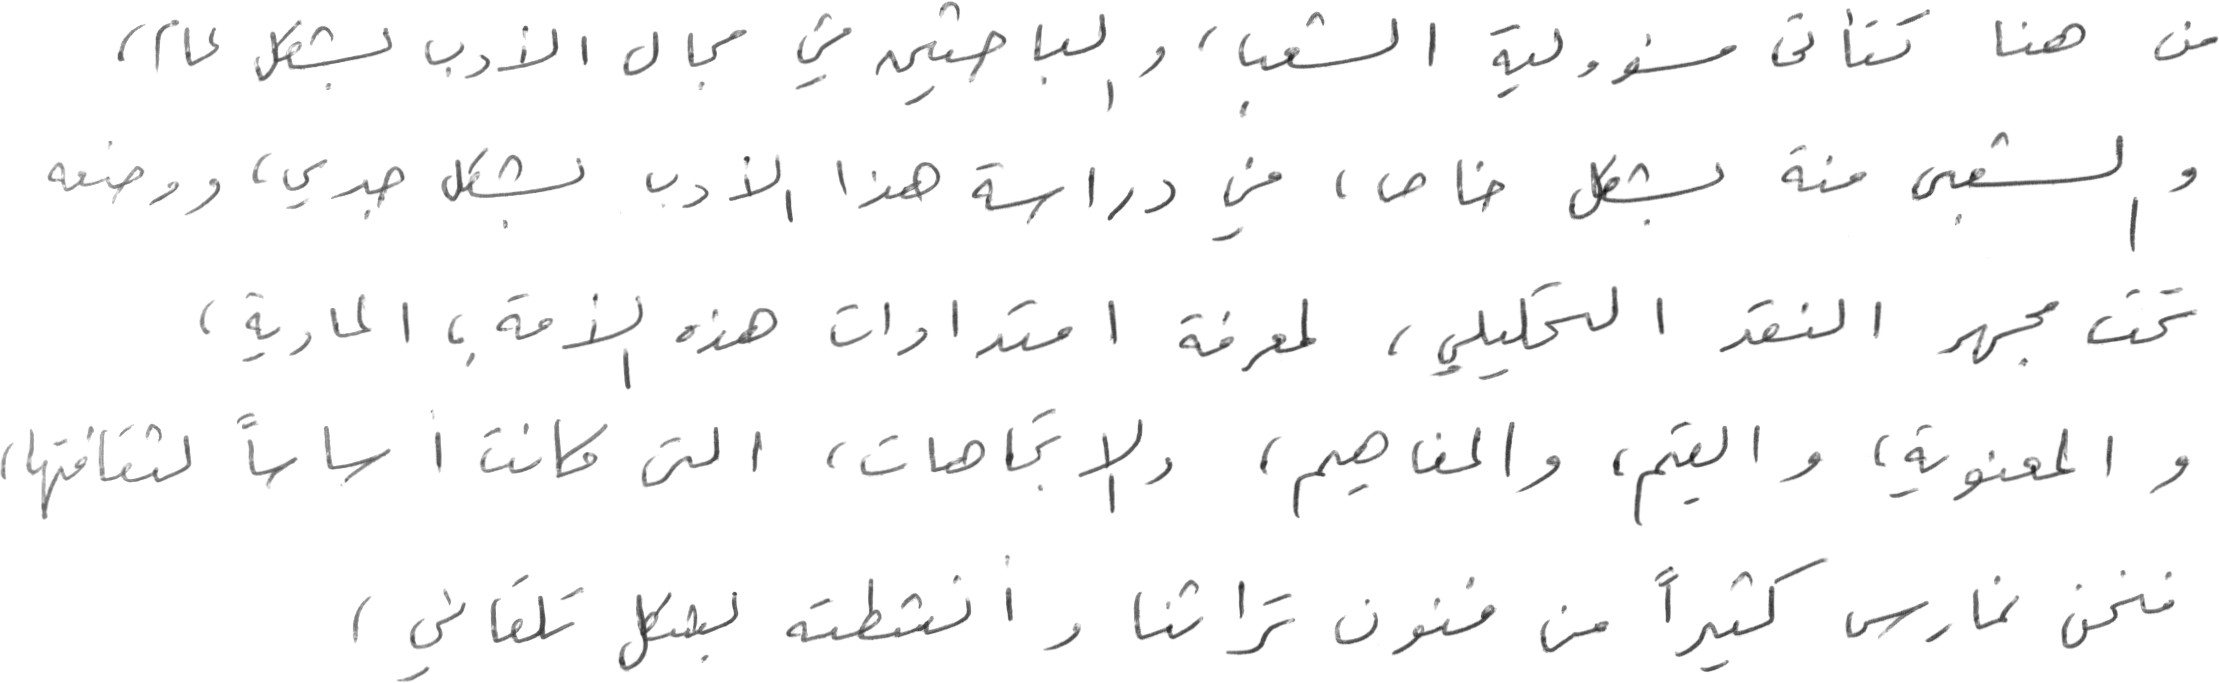 من هنا تتأتى مسؤولية الشعب، والباحثين في مجال الأدب بشكل عام،
والشعبي منه بشكل خاص، في دراسة هذا الأدب بشكل جدي، ووضعه
تحت مجهر النقد التحليلي، لمعرفة امتدادات هذه الأمة، المادية،
والمعنوية، والقيم، والمفاهيم، والاتجاهات، التي كانت أساساً لثقافتها،
فنحن نمارس كثيراً من فنون تراثنا وأنشطته بشكل تلقائي،